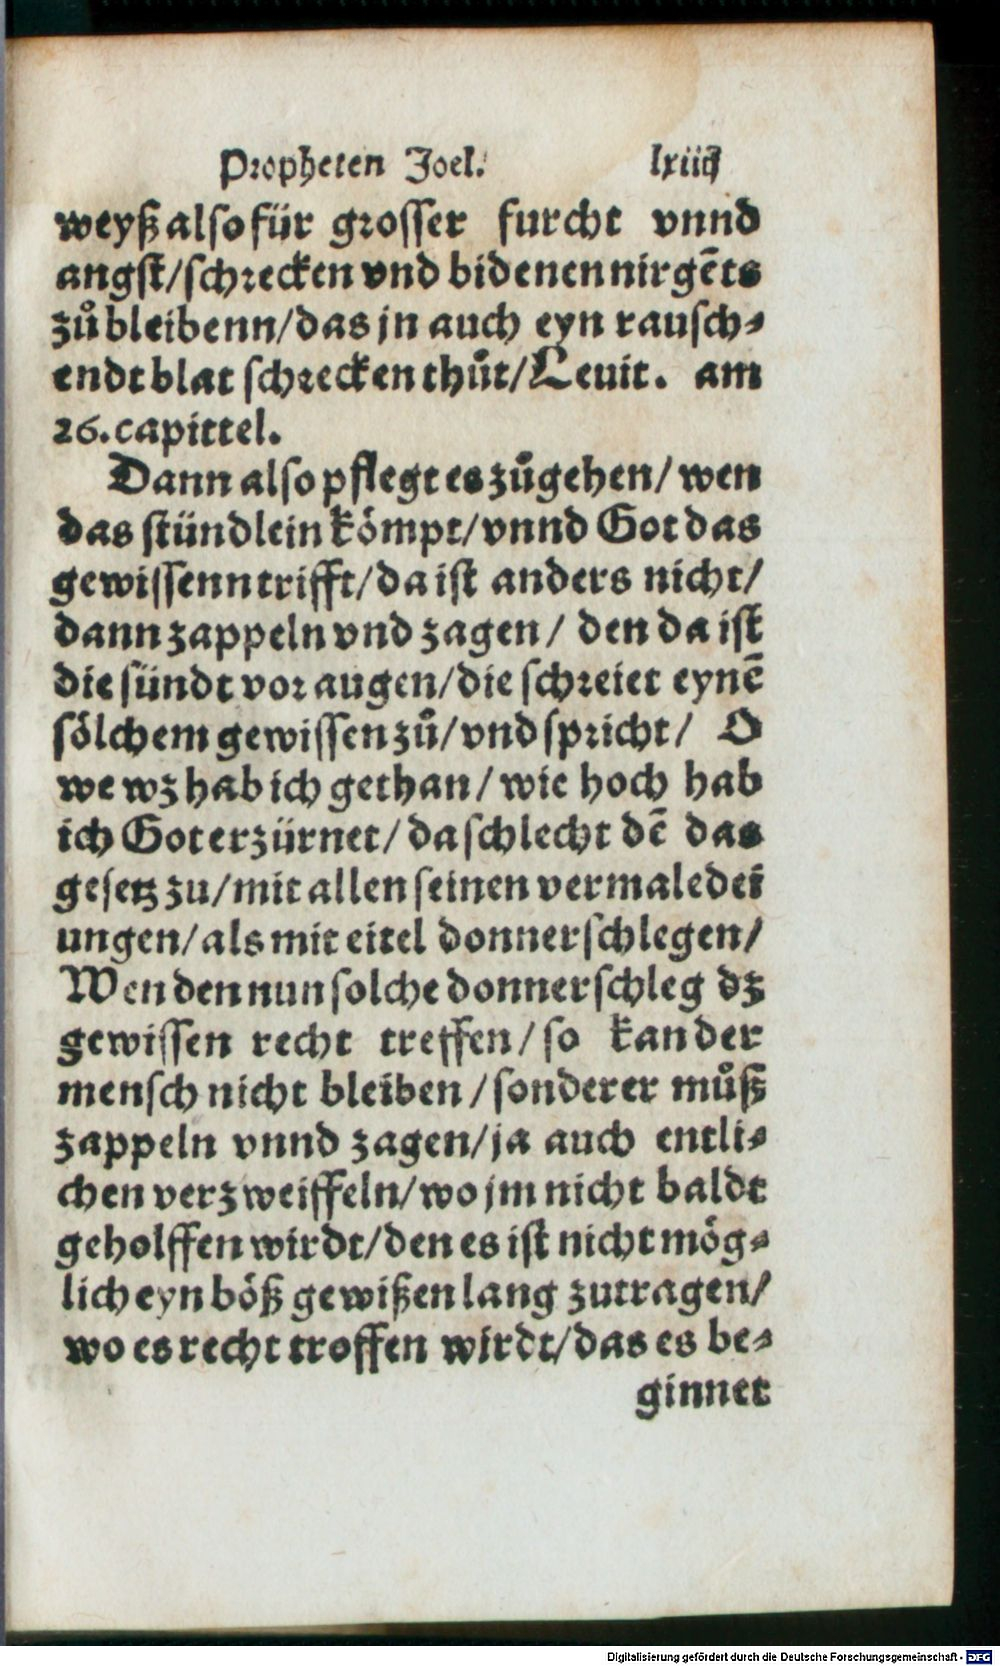 Propheten Joel. lxiiij
weyß also für grosser furcht vnnd
angst/schrecken vnd bidenen nirgẽts
zů bleibenn/das jn auch eyn rausch⸗
endt blat schrecken thůt/Leuit. am
26. capittel.
Dann also pflegt es zůgehen/wen
das stündlein kömpt/vnnd Got das
gewissenn trifft/da ist anders nicht/
dann zappeln vnd zagen/ den da ist
die sündt vor augen/die schreiet eynẽ
sölchem gewissen zů/vnd spricht/ O
we wz hab ich gethan/wie hoch hab
ich Got erzürnet/da schlecht dẽ das
gesetz zu/mit allen seinen vermaledei
ungen/als mit eitel donnerschlegen/
Wen den nun solche donnerschleg dz
gewissen recht treffen/so kan der
mensch nicht bleiben/sonder er můß
zappeln vnnd zagen/ja auch entli⸗
chen verzweiffeln/wo jm nicht baldt
geholffen wirdt/den es ist nicht mög⸗
lich eyn böß gewißen lang zutragen/
wo es recht troffen wirdt/das es be⸗
ginnet
Digitalisierung gefördert durch die Deutsche Forschungsgemeinschaft - DFG